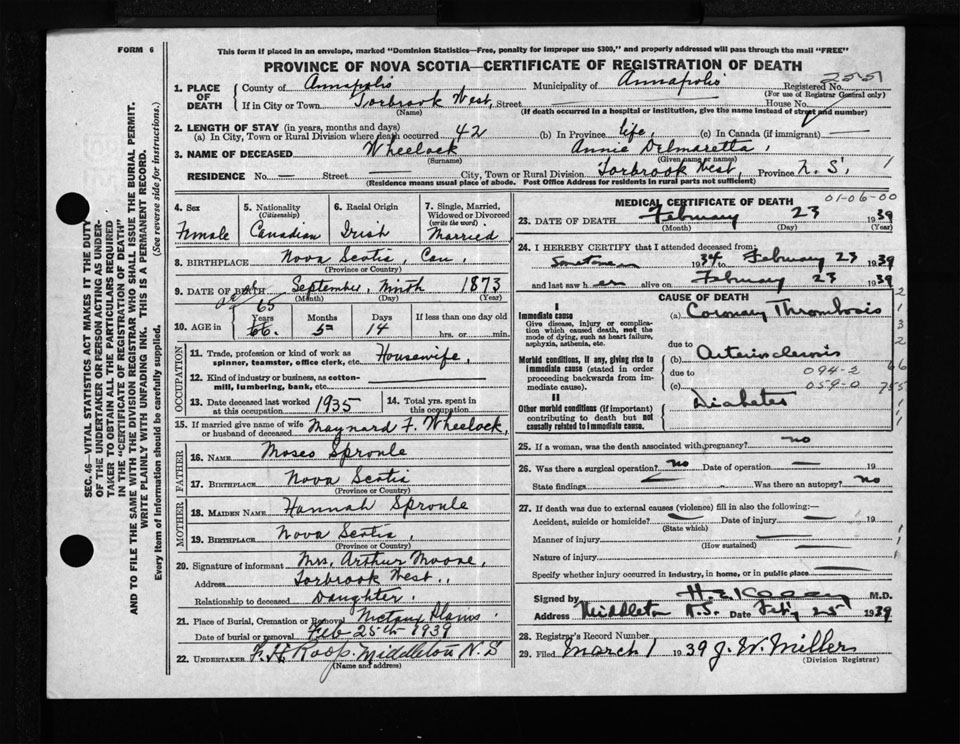 FORM 6
This form if placed in an envelope, marked "Dominion Statistics—Free, penalty for improper use $300," and properly addressed will pass through the mail "FREE"
PROVINCE OF NOVA SCOTIA—CERTIFICATE OF REGISTRATION OF DEATH
2551
1. PLACE OF DEATH
County of Annapolis Municipality of Annapolis Registered No.
(For use of Registrar General only)
If in City or Town Torbrook West, Street — House No.
(Name) (If death occurred in a hospital or institution, give the name instead of street and number)
2. LENGTH OF STAY (in years, months and days)
(a) In City, Town or Rural Division where death occurred 42 (b) In Province life, (c) In Canada (if immigrant) —
3. NAME OF DECEASED Wheelock Annie Delmaretta,
(Surname) (Given name or names)
RESIDENCE No. — Street — City, Town or Rural Division Torbrook West, Province N. S. 1
(Residence means usual place of abode. Post Office Address for residents in rural parts not sufficient)
4. Sex
Female
5. Nationality
(Citizenship)
Canadian
6. Racial Origin
Irish
7. Single, Married, Widowed or Divorced
(write the word)
Married
8. BIRTHPLACE Nova Scotia, Can,
(Province or Country)
9. DATE OF BIRTH September, Ninth 1873
(Month) (Day) (Year)
65
10. AGE in
Years Months Days If less than one day old
66. 5 14 hrs. or min.
OCCUPATION
11. Trade, profession or kind of work as spinner, teamster, office clerk, etc. Housewife,
12. Kind of industry or business, as cotton-mill, lumbering, bank, etc. —
13. Date deceased last worked at this occupation 1935
14. Total yrs. spent in this occupation
15. If married give name of wife or husband of deceased Maynard F. Wheelock,
FATHER
16. NAME Moses Sproule
17. BIRTHPLACE Nova Scotia
(Province or Country)
MOTHER
18. MAIDEN NAME Hannah Sproule
19. BIRTHPLACE Nova Scotia,
(Province or Country)
20. Signature of informant Mrs. Arthur Moore,
Address Torbrook West.,
Relationship to deceased Daughter.
21. Place of Burial, Cremation or Removal Nictaux Plains
Date of burial or removal Feb 25th 1939
22. UNDERTAKER F. H. Roop. Middleton N. S
(Name and address)
MEDICAL CERTIFICATE OF DEATH
01-06-00
23. DATE OF DEATH February 23 1939
(Month) (Day) (Year)
24. I HEREBY CERTIFY that I attended deceased from:
1934 to February 23 1939
and last saw h er alive on February 23 1939
CAUSE OF DEATH
I
Immediate cause
Give disease, injury or complication which caused death, not the mode of dying, such as heart failure, asphyxia, asthenia, etc.
(a) Coronary Thrombosis
due to
Morbid conditions, if any, giving rise to immediate cause (stated in order proceeding backwards from immediate cause).
(b) Arteriosclerosis
due to 094-2
(c) 059-0
II
Other morbid conditions (if important) contributing to death but not causally related to immediate cause.
Diabetes
25. If a woman, was the death associated with pregnancy? no
26. Was there a surgical operation? no Date of operation — 19
State findings — Was there an autopsy? no
27. If death was due to external causes (violence) fill in also the following:—
Accident, suicide or homicide? — Date of injury — 19
(State which)
Manner of injury —
(How sustained)
Nature of injury —
Specify whether injury occurred in industry, in home, or in public place —
Signed by M.D.
Address Middleton N.S. Date Feb'y 25 1939
28. Registrar's Record Number
29. Filed March 1 1939 J. W. Miller
(Division Registrar)
SEC. 46—VITAL STATISTICS ACT MAKES IT THE DUTY
OF THE UNDERTAKER OR PERSON ACTING AS UNDER-
TAKER TO OBTAIN ALL THE PARTICULARS REQUIRED
IN THE "CERTIFICATE OF REGISTRATION OF DEATH"
AND TO FILE THE SAME WITH THE DIVISION REGISTRAR WHO SHALL ISSUE THE BURIAL PERMIT.
WRITE PLAINLY WITH UNFADING INK. THIS IS A PERMANENT RECORD.
Every item of information should be carefully supplied. (See reverse side for instructions.)